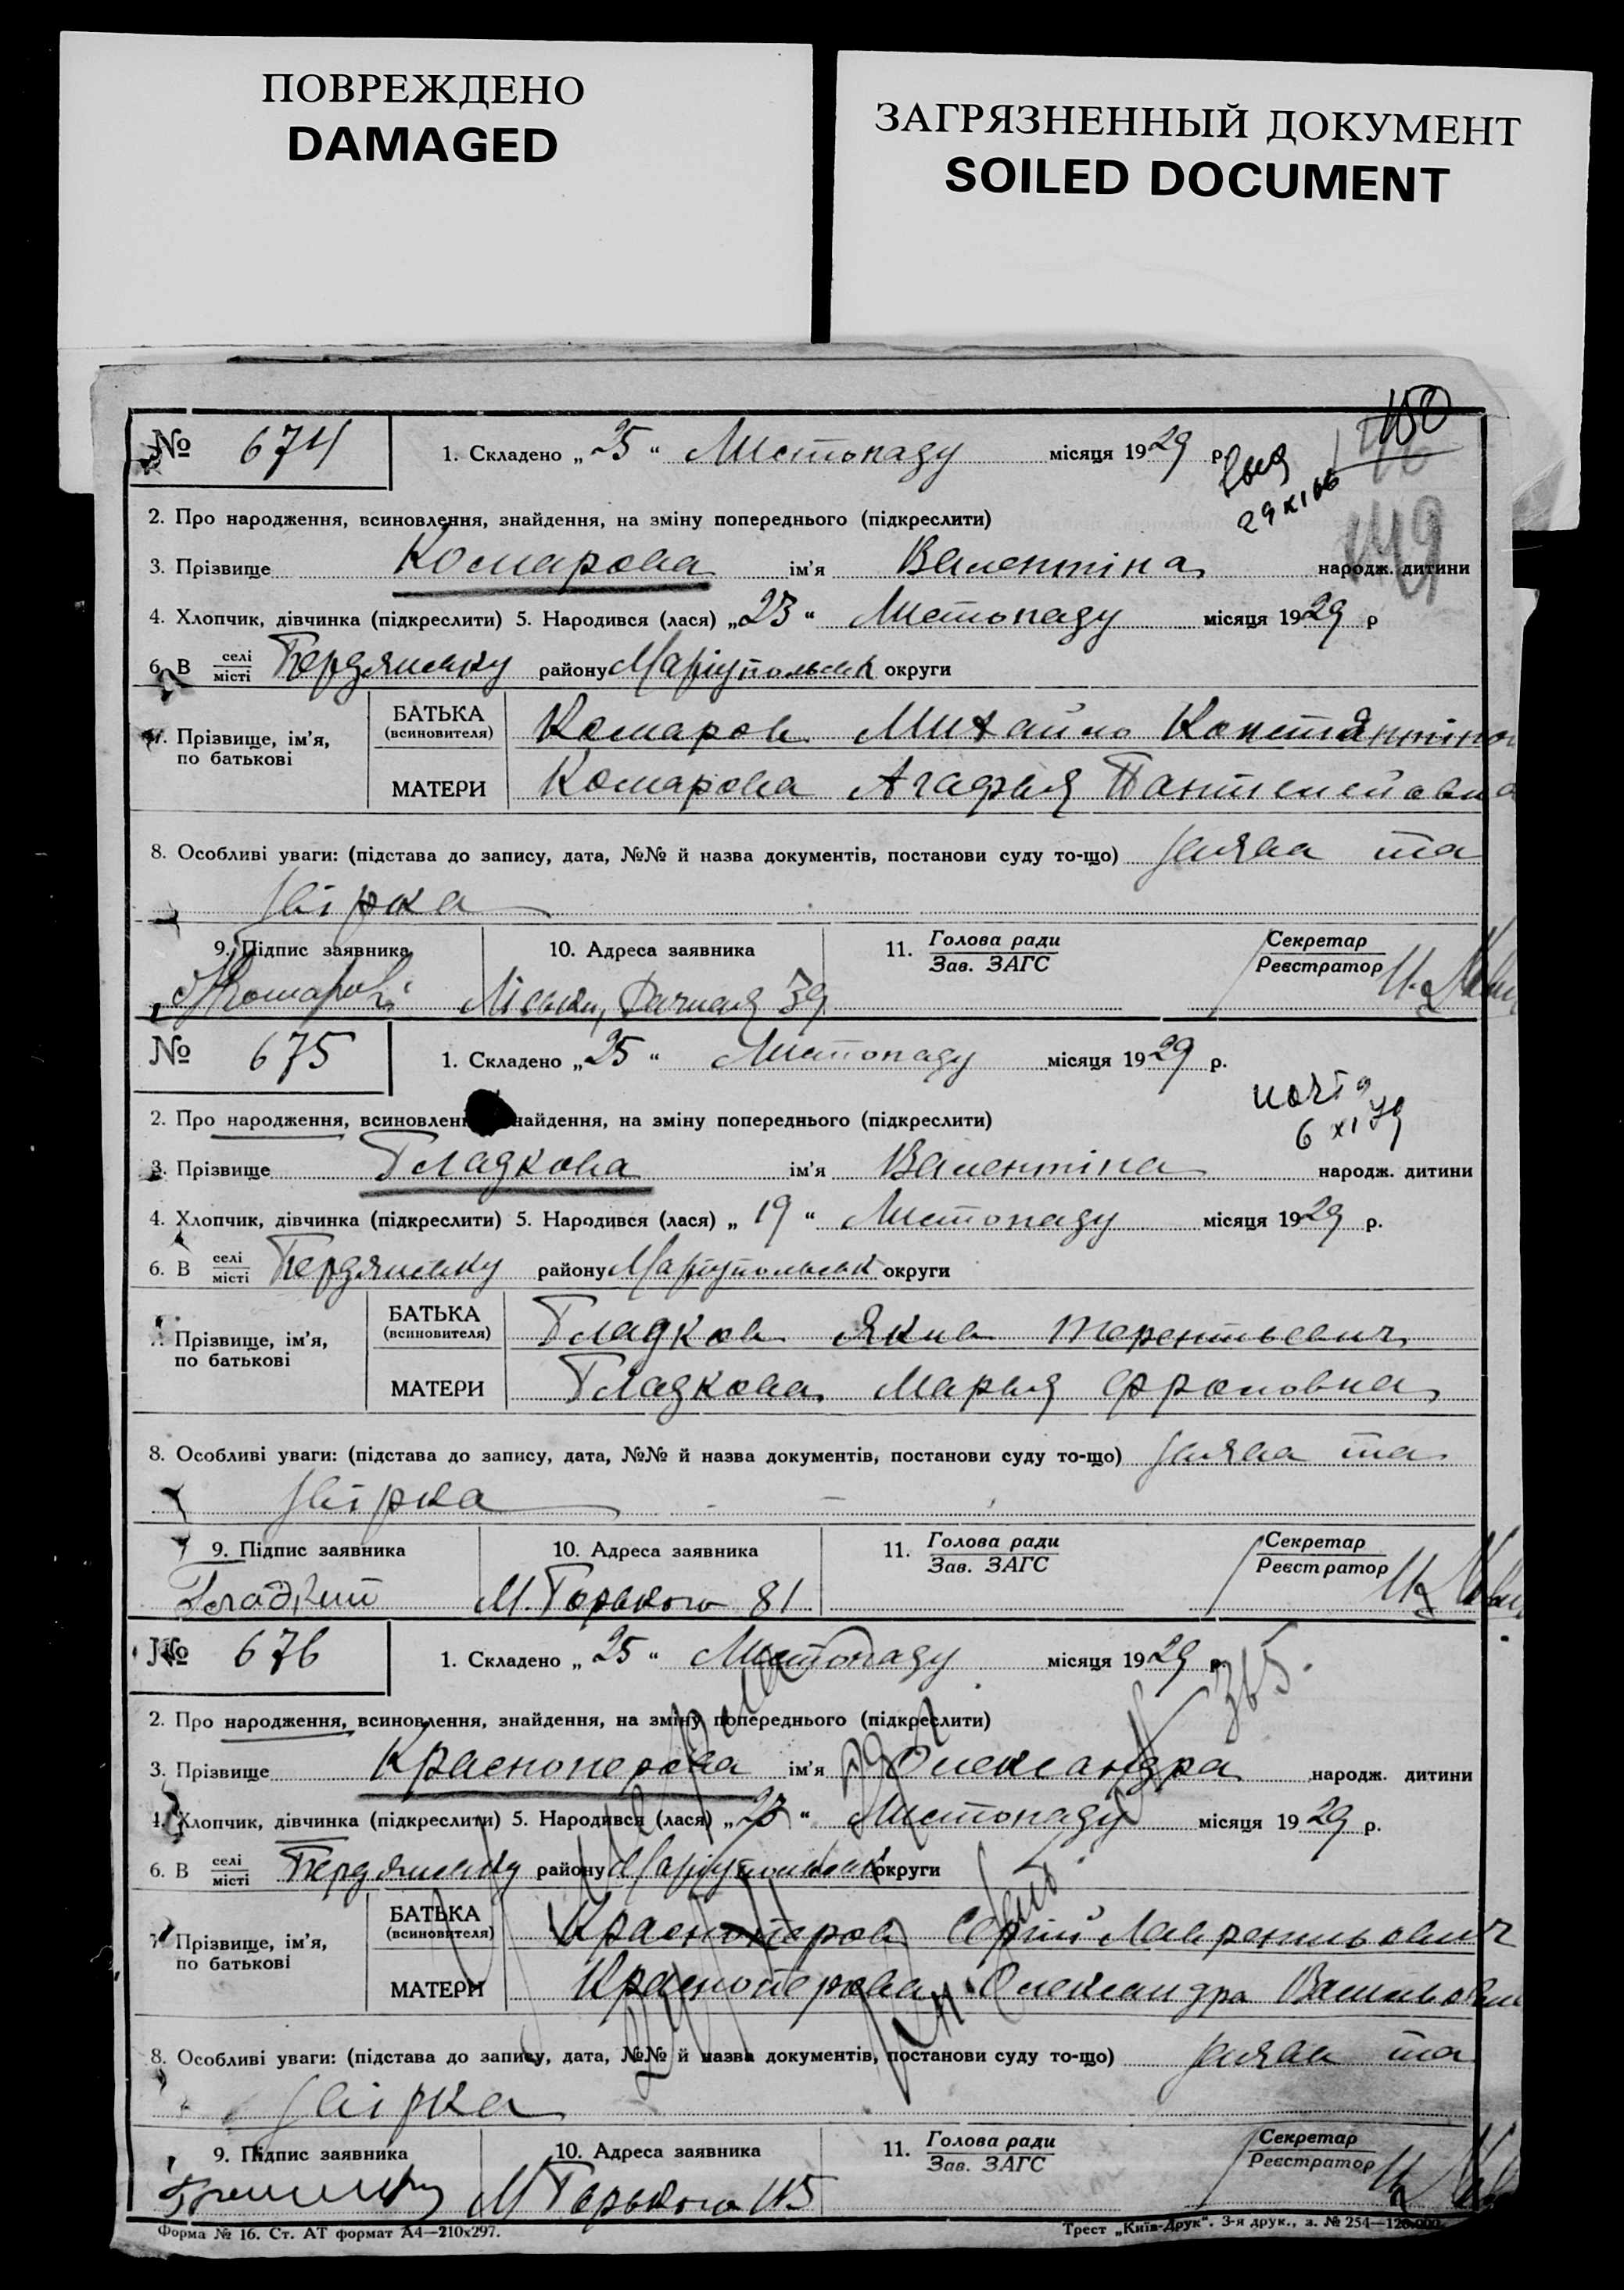 ПОВРЕЖДЕНО
DAMAGED
ЗАГРЯЗНЕННЫЙ ДОКУМЕНТ
SOILED DOCUMENT
150
149
№ 674 1. Складено „25“ Листопаду місяця 1929 р.
29 XI 66
2. Про народження, всиновлення, знайдення, на зміну попереднього (підкреслити)
3. Прізвище Комарова ім'я Валентіна народж. дитини
4. Хлопчик, дівчинка (підкреслити) 5. Народився (лася) „23“ Листопаду місяця 1929 р
6. В селі/місті Бердянську району Маріупольськ округи
7. Прізвище, ім'я, по батькові
БАТЬКА (всиновителя) Комаров Михайло Константінов
МАТЕРИ Комарова Агафья Пантелейовна
8. Особливі уваги: (підстава до запису, дата, №№ й назва документів, постанови суду то-що) заява та
звірка
9. Підпис заявника 10. Адреса заявника 11. Голова ради/Зав. ЗАГС Секретар/Реєстратор
Комаров Ліски, Дачная 39
№ 675 1. Складено „25“ Листопаду місяця 1929 р.
6 XI 79
2. Про народження, всиновлен найдення, на зміну попереднього (підкреслити)
3. Прізвище Гладкова ім'я Валентіна народж. дитини
4. Хлопчик, дівчинка (підкреслити) 5. Народився (лася) „19“ Листопаду місяця 1929 р.
6. В селі/місті Бердянську району Маріупольськ округи
7. Прізвище, ім'я, по батькові
БАТЬКА (всиновителя) Гладков Якив Терентьевич
МАТЕРИ Гладкова Марья Фроловна
8. Особливі уваги: (підстава до запису, дата, №№ й назва документів, постанови суду то-що) заява та
звірка
9. Підпис заявника 10. Адреса заявника 11. Голова ради/Зав. ЗАГС Секретар/Реєстратор
М. Горького 81
№ 676 1. Складено „25“ Листопаду місяця 1929 р.
365.
2. Про народження, всиновлення, знайдення, на зміну попереднього (підкреслити)
3. Прізвище Красноперова ім'я Олександра народж. дитини
4. Хлопчик, дівчинка (підкреслити) 5. Народився (лася) „23“ Листопаду місяця 1929 р.
6. В селі/місті Бердянську району Маріупольськ округи
7. Прізвище, ім'я, по батькові
БАТЬКА (всиновителя) Красноперов Сергій Лаврентьович
МАТЕРИ Красноперова Олександра Васильовн
8. Особливі уваги: (підстава до запису, дата, №№ й назва документів, постанови суду то-що) заява та
звірка
9. Підпис заявника 10. Адреса заявника 11. Голова ради/Зав. ЗАГС Секретар/Реєстратор
М Горького 115
Форма № 16. Ст. АТ формат А4—210х297. Трест „Київ-Друк“. 3-я друк., з. № 254—120.000